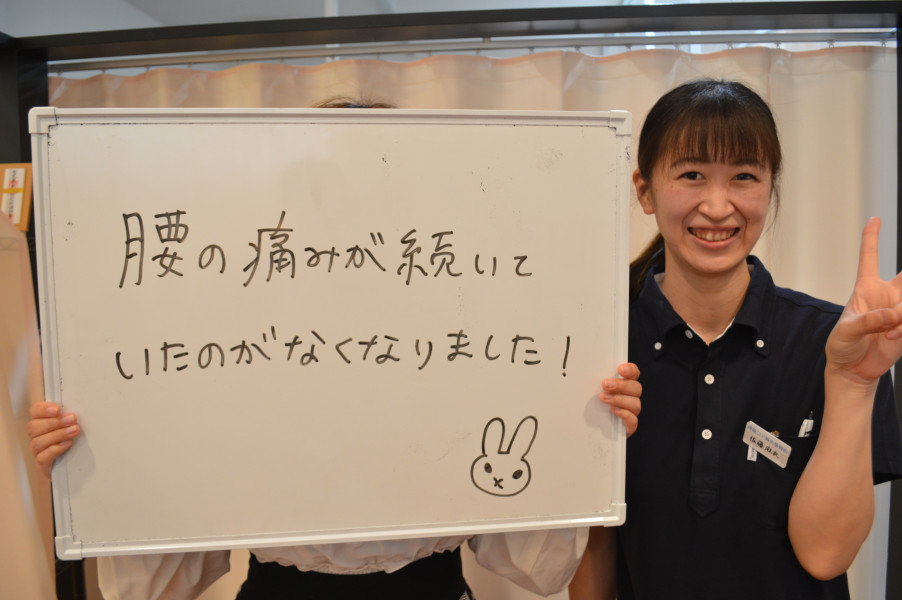 腰の痛みが続いて
いたのがなくなりました！